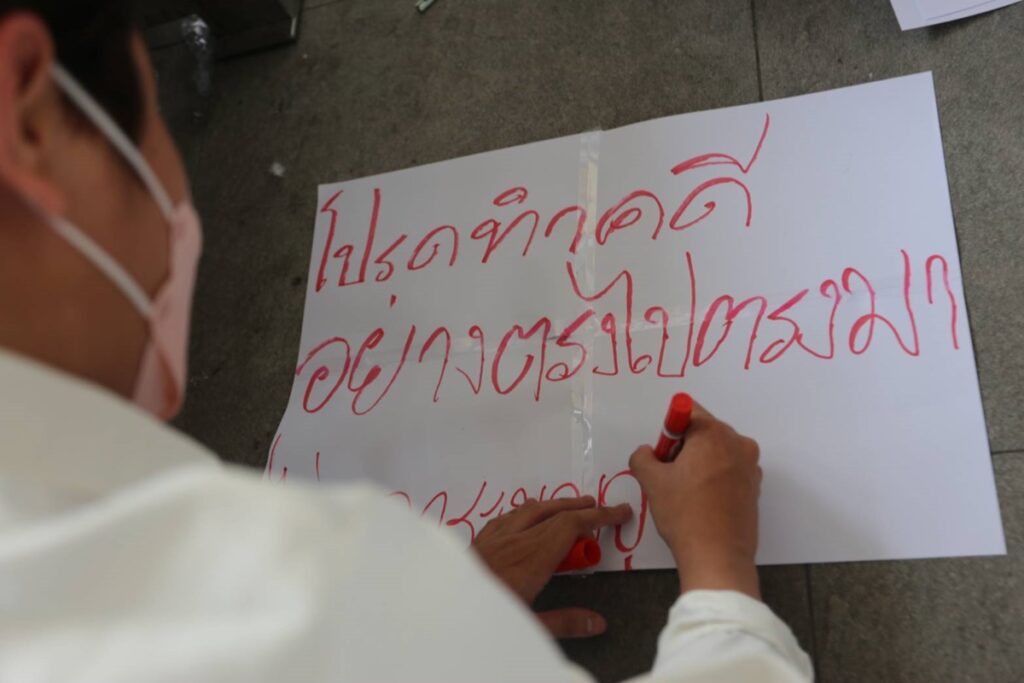 โปรดทำคดี
อย่างตรงไปตรงมา